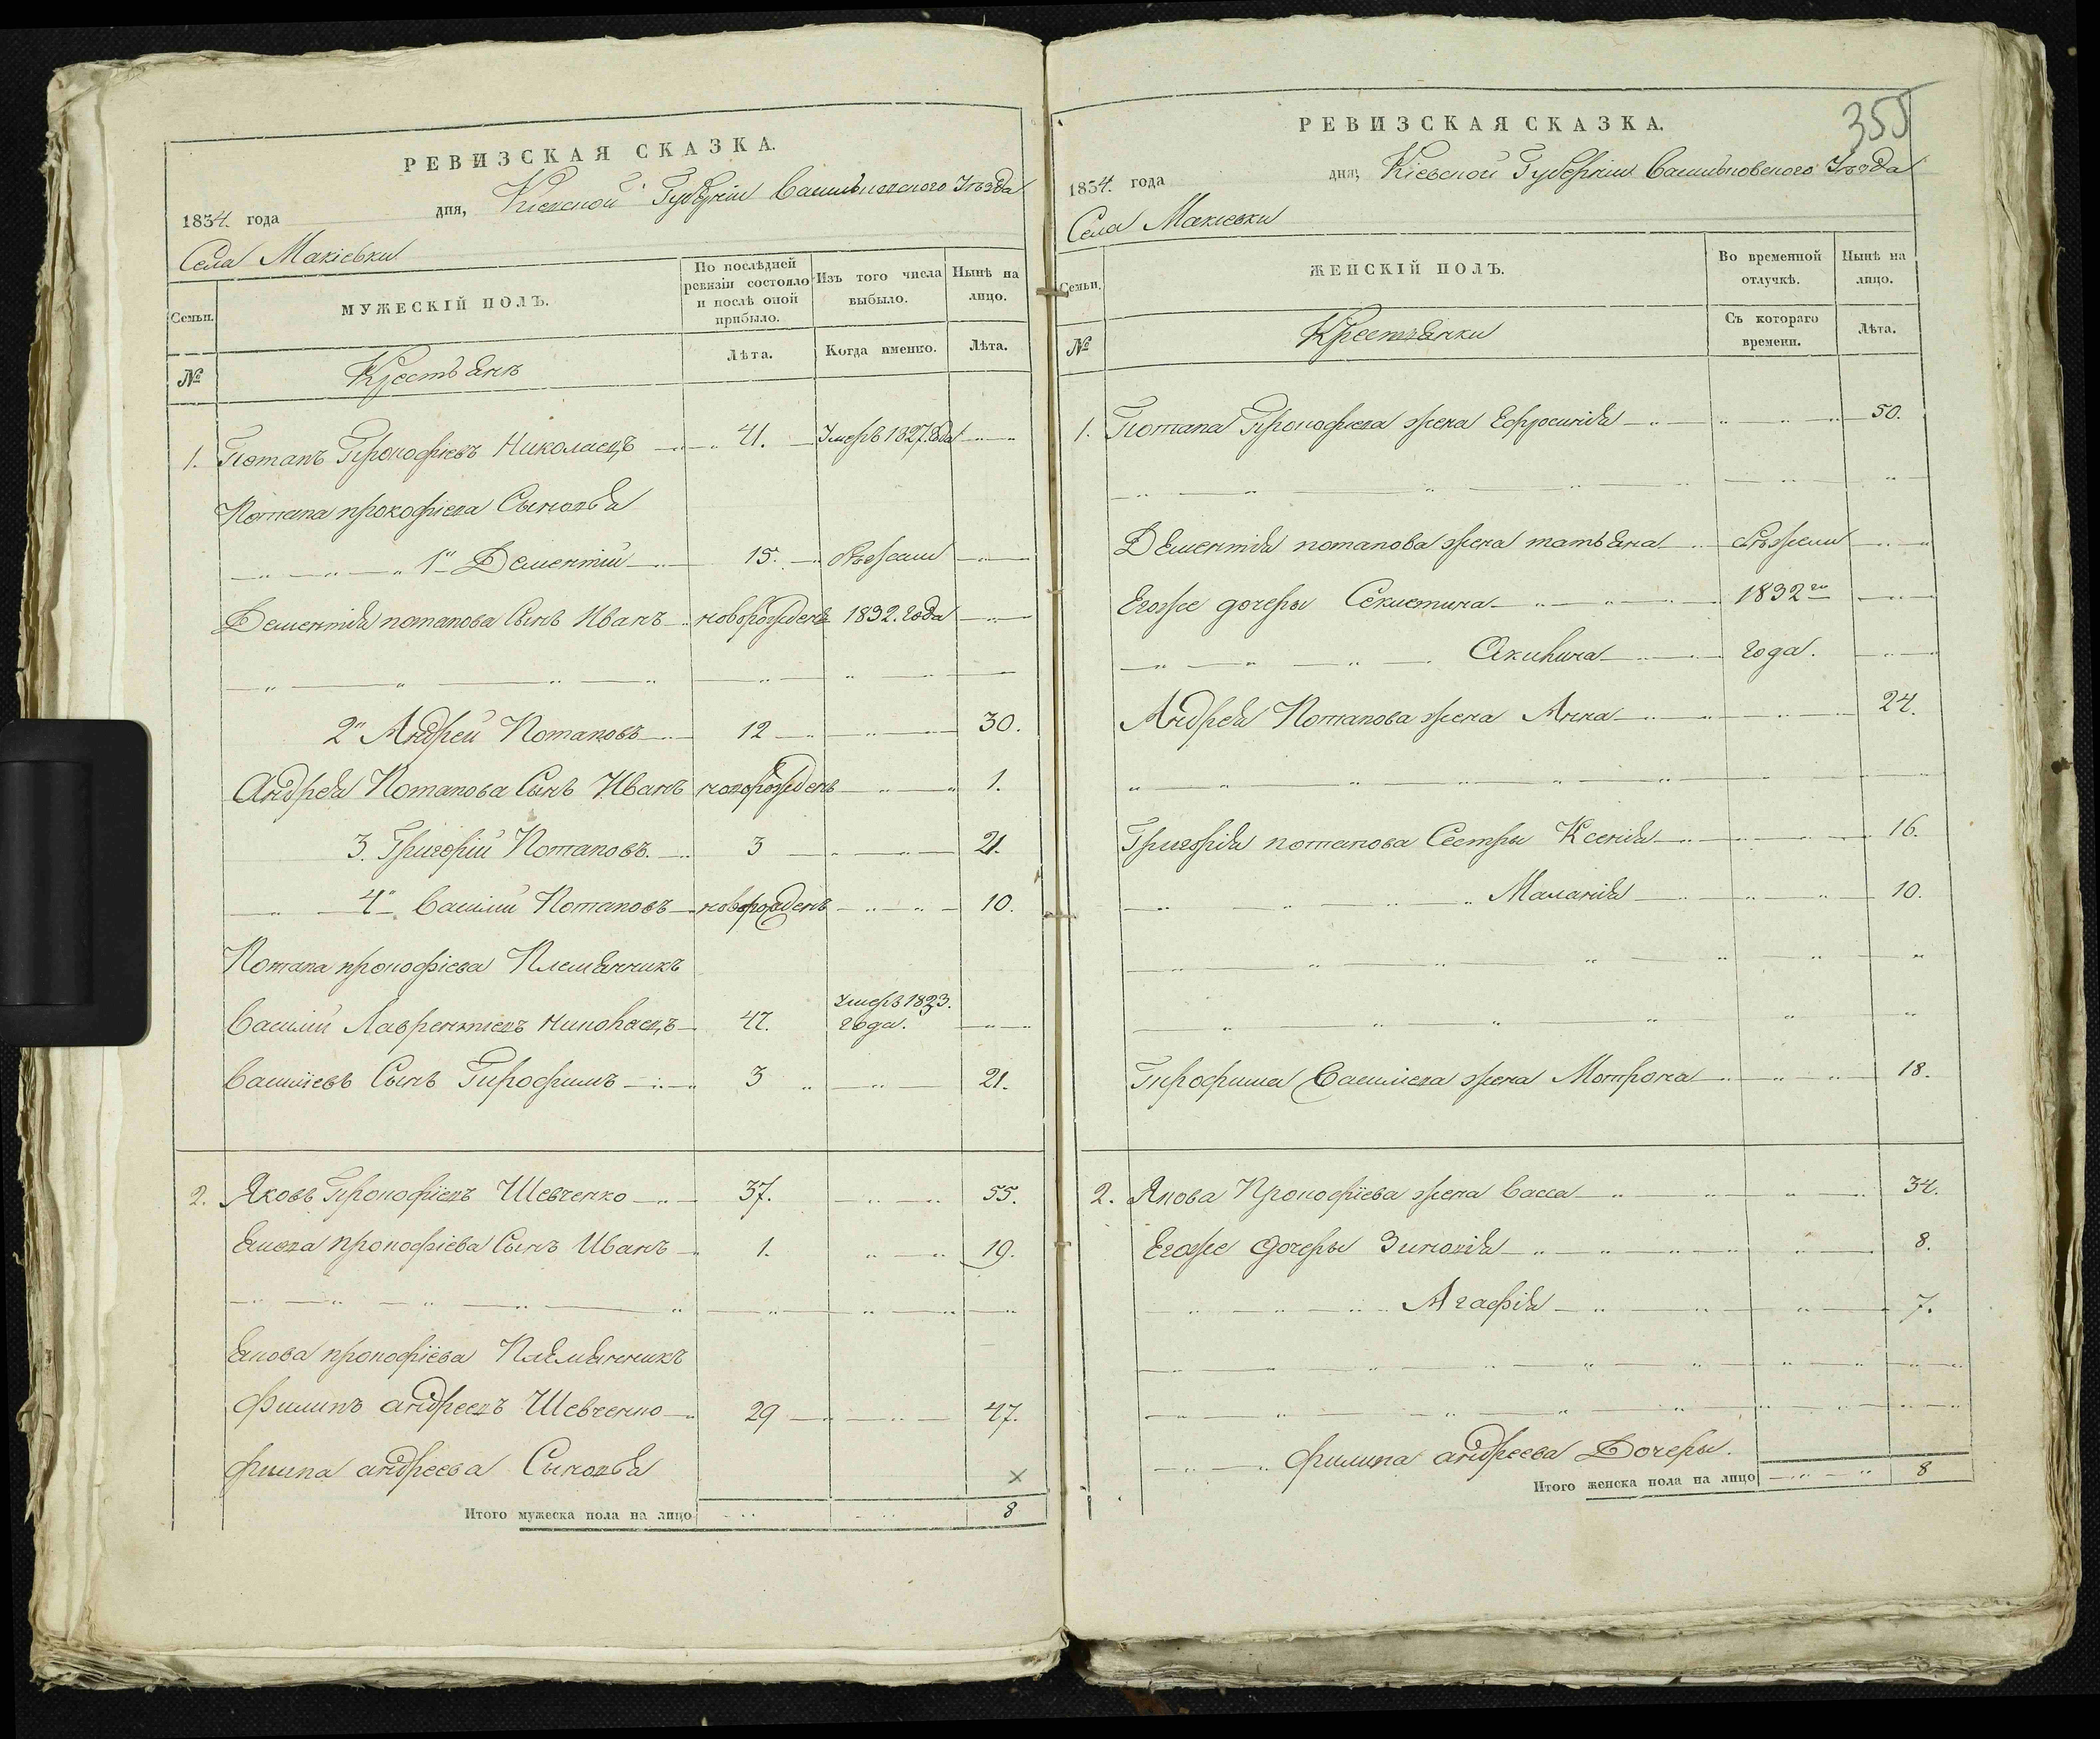 РЕВИЗСКАЯ СКАЗКА.
1834. года дня, Кіевской Губерніи Васильковского Уѣзда
Села Макіевки
Семьи.
МУЖЕСКІЙ ПОЛЪ.
По послѣдней ревизіи состояло и послѣ оной прибыло.
Изъ того числа выбыло.
Нынѣ на лицо.
№
Крестьянъ
Лѣта.
Когда именно.
Лѣта.
1. Потапъ Прокофіевъ Николаецъ 41. Умеръ 1827. года
Потапа прокофіева Сыновья
1й Дементій 15. бѣжали
Дементія потапова Сынъ Иванъ новорожденъ 1832. года
2й Андрей Потаповъ 12 30.
Андрея Потапова Сынъ Иванъ новорожденъ 1.
3. Григорій Потаповъ. 3 21.
4й Василій Потаповъ новорожденъ 10.
Потапа прокофіева Племянникъ
Василій Лаврентіевъ Николаецъ 47. Умеръ 1823. года.
Василіевъ Сынъ Трофимъ 3 21.
2. Яковъ Прокофіевъ Шевченко 37. 55.
Якова прокофіева Сынъ Иванъ 1. 19.
Якова прокофіева Племянникъ
Филипъ андреевъ Шевченко 29 47.
филипа андреева Сыновья ×
Итого мужеска пола на лицо 8
355
РЕВИЗСКАЯ СКАЗКА.
1834. года дня, Кіевской Губерніи Васильковского Уѣзда
Села Макіевки
Семьи.
ЖЕНСКІЙ ПОЛЪ.
Во временной отлучкѣ.
Нынѣ на лицо.
№
Крестьянки
Съ котораго времени.
Лѣта.
1. Потапа Прокофіева жена Ефросинія 50.
Дементія потапова жена татьяна бѣжали
Егоже дочеры 1832го
года.
Андрея Потапова жена Анна 24.
Григорія потапова Сестры Ксенія 16.
Маланія 10.
Трофима Василіева жена Мотрона 18.
2. Якова Прокофіева жена Васса 34.
Егоже дочеры Зиновія 8.
Агафія 7.
филипа андреева Дочеры.
Итого женска пола на лицо 8